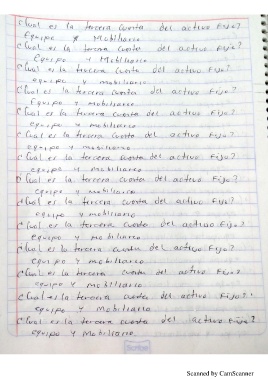 ¿Cual es la tercera cuenta del activo Fijo?
Equipo y Mobiliario
¿Cual es la tercera cuenta del activo Fijo?
Equipo y Mobiliario
¿Cual es la tercera cuenta del activo Fijo?
equipo y mobiliario
¿Cual es la tercera cuenta del activo Fijo?
Equipo y mobiliario
¿Cual es la tercera cuenta del activo Fijo?
equipo y mobiliario
¿Cual es la tercera cuenta del activo Fijo?
equipo y mobiliario
¿Cual es la tercera cuenta del activo Fijo?
equipo y mobiliario
¿Cual es la tercera cuenta del activo Fijo?
equipo y mobiliario
¿Cual es la tercera cuenta del activo Fijo?
equipo y mobiliario
¿Cual es la tercera cuenta del activo Fijo?
equipo y mobiliario
¿Cual es la tercera cuenta del activo Fijo?
equipo y mobiliario
¿Cual es la tercera cuenta del activo Fijo?
equipo y mobiliario
¿Cual es la tercera cuenta del activo Fijo?
equipo y mobiliario
¿Cual es la tercera cuenta del activo Fijo?
equipo y mobiliario
Scribe
Scanned by CamScanner